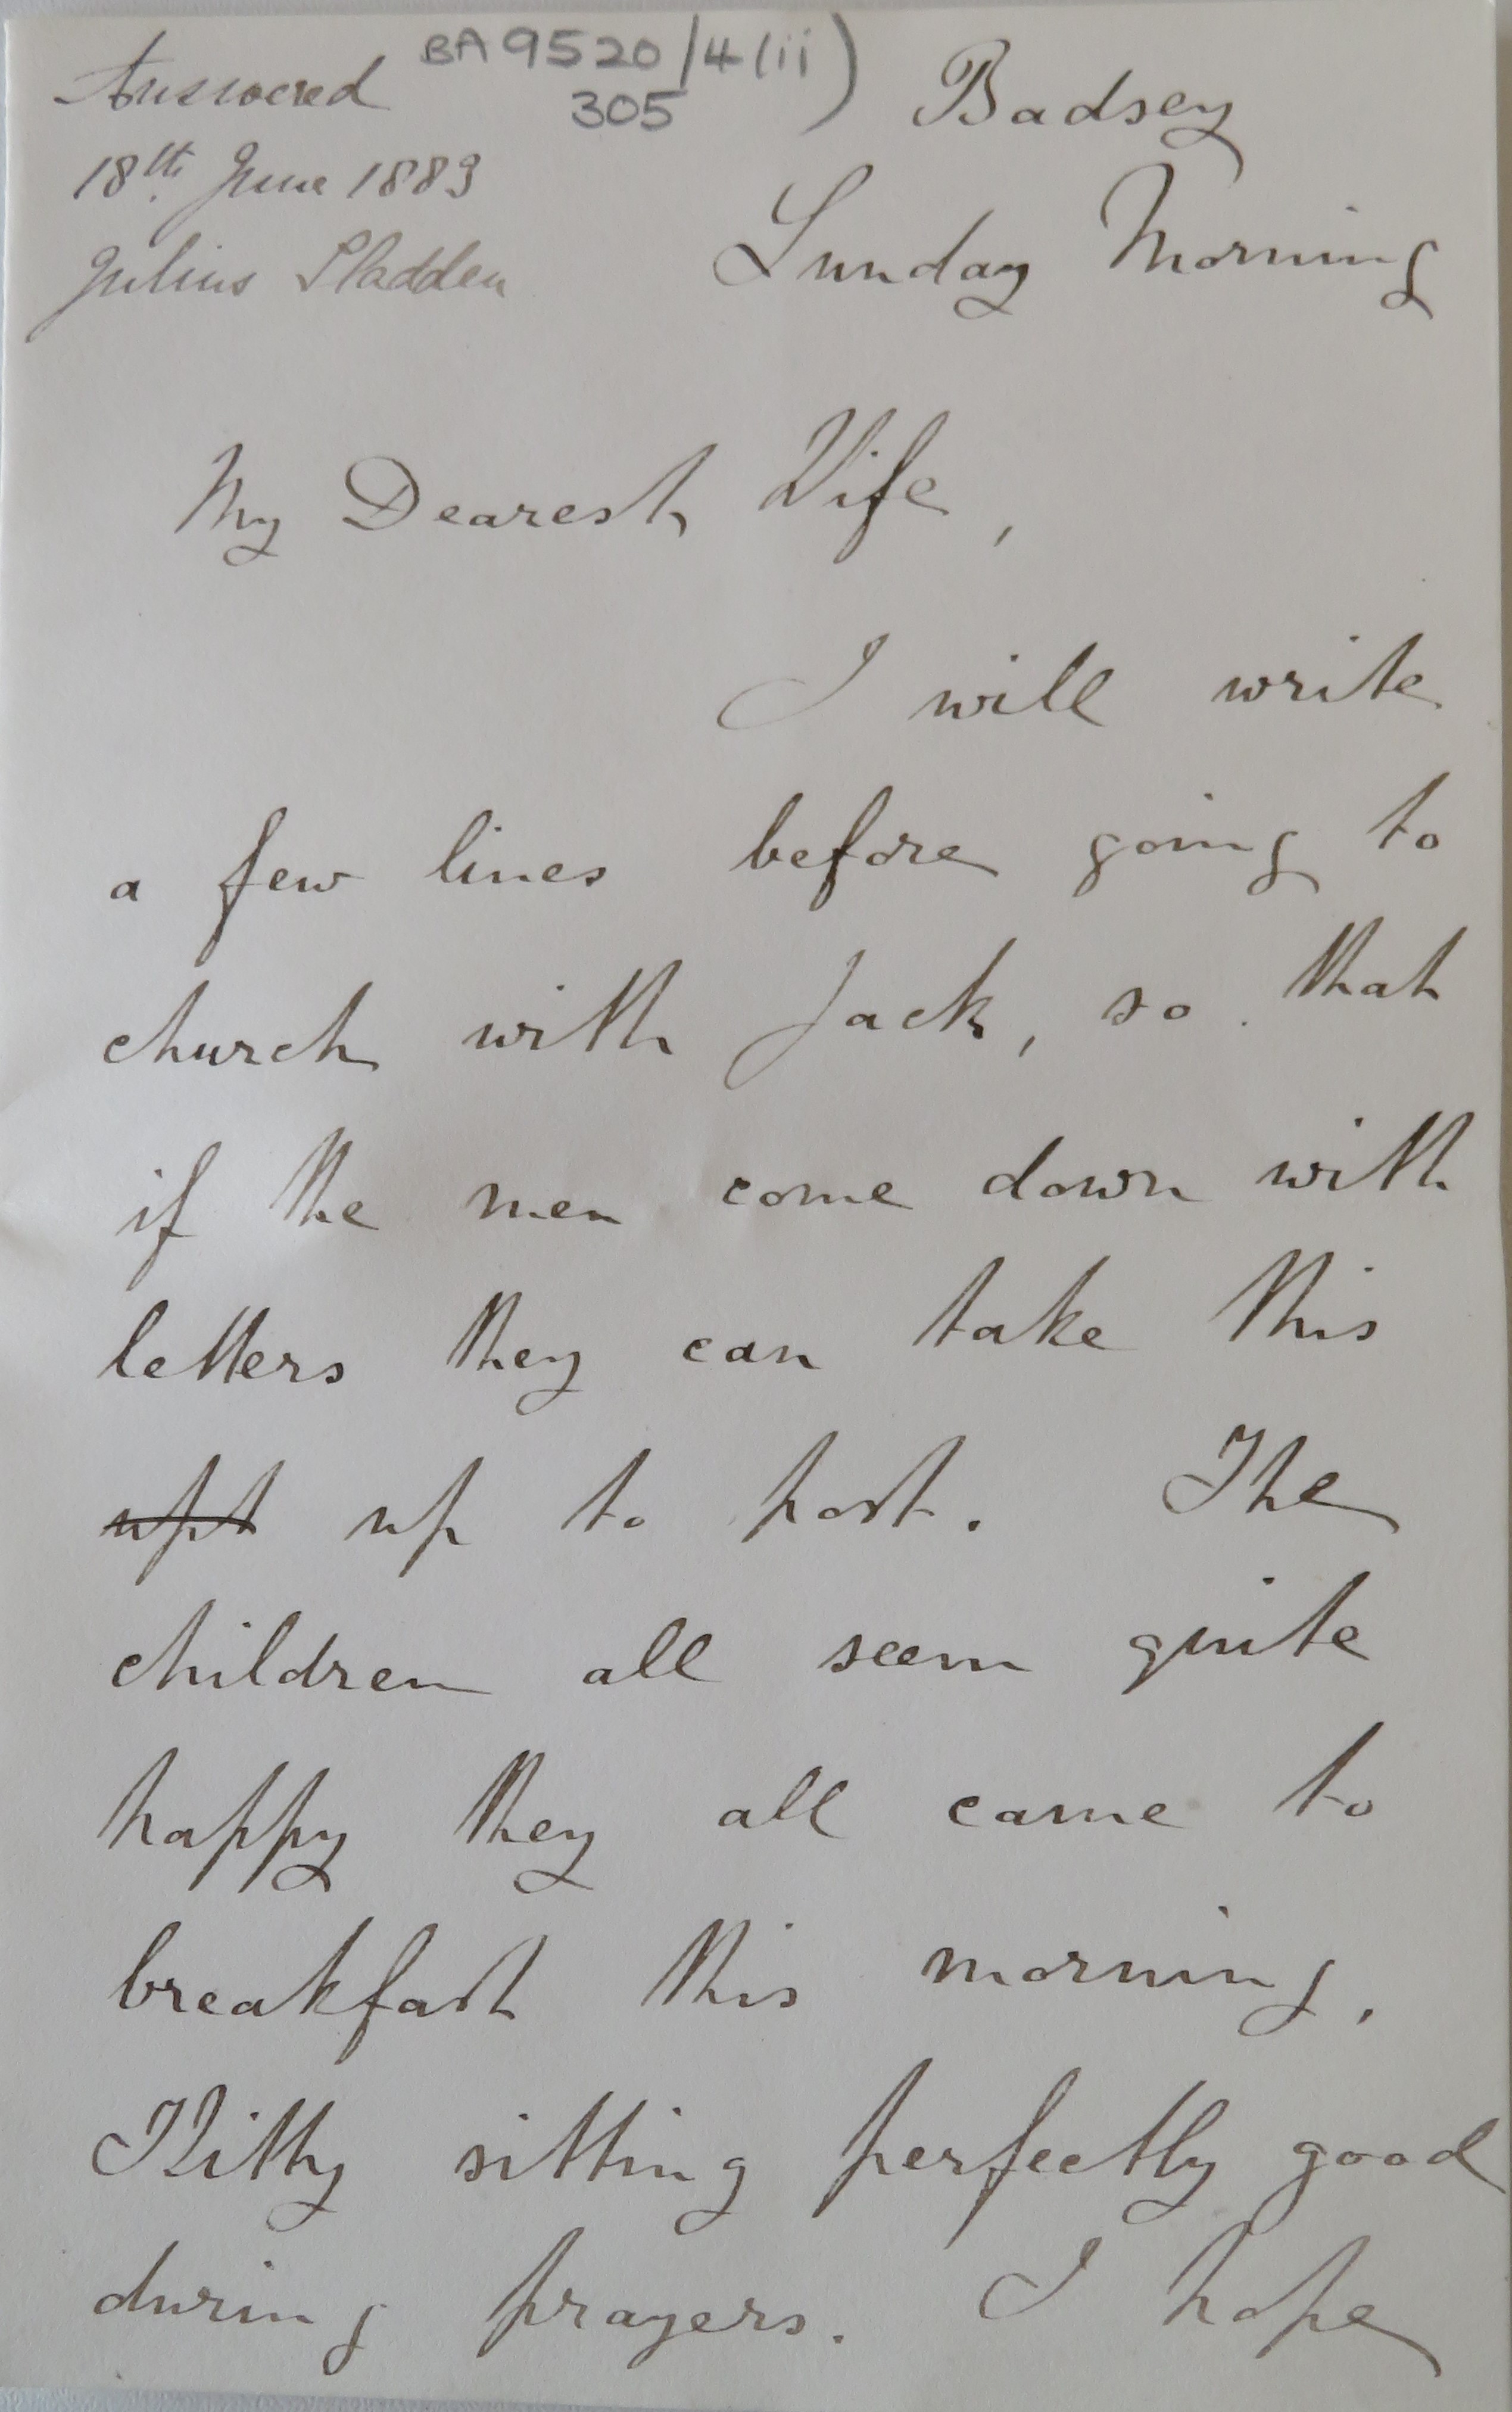 BA 9520/4(ii)
305
Answered
18th June 1883
Julius Sladden
Badsey
Sunday Morning
My Dearest Wife,
I will write
a few lines before going to
church with Jack, so that
if the men come down with
letters they can take this
up to post. The
children all seem quite
happy they all came to
breakfast this morning,
Kitty sitting perfectly good
during prayers. I hope